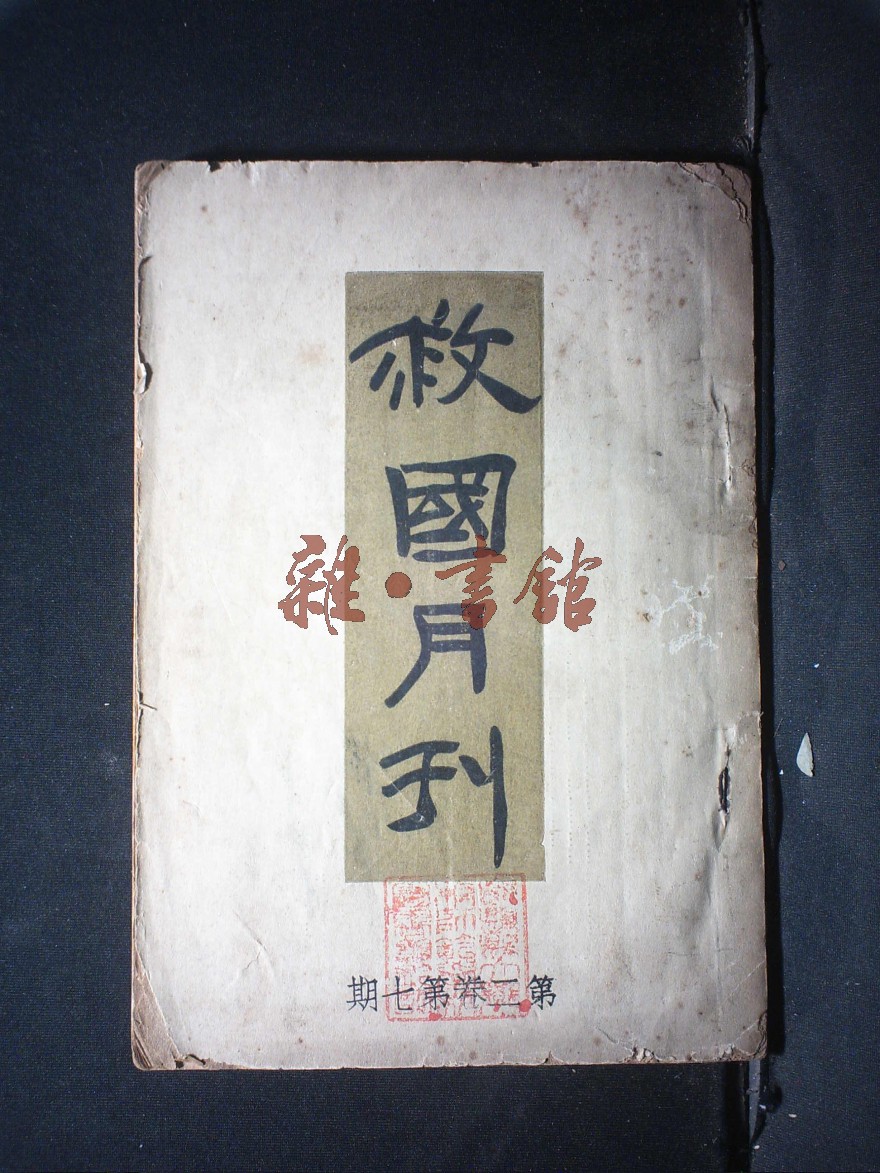 救國月刊
雜·書館
第二卷第七期